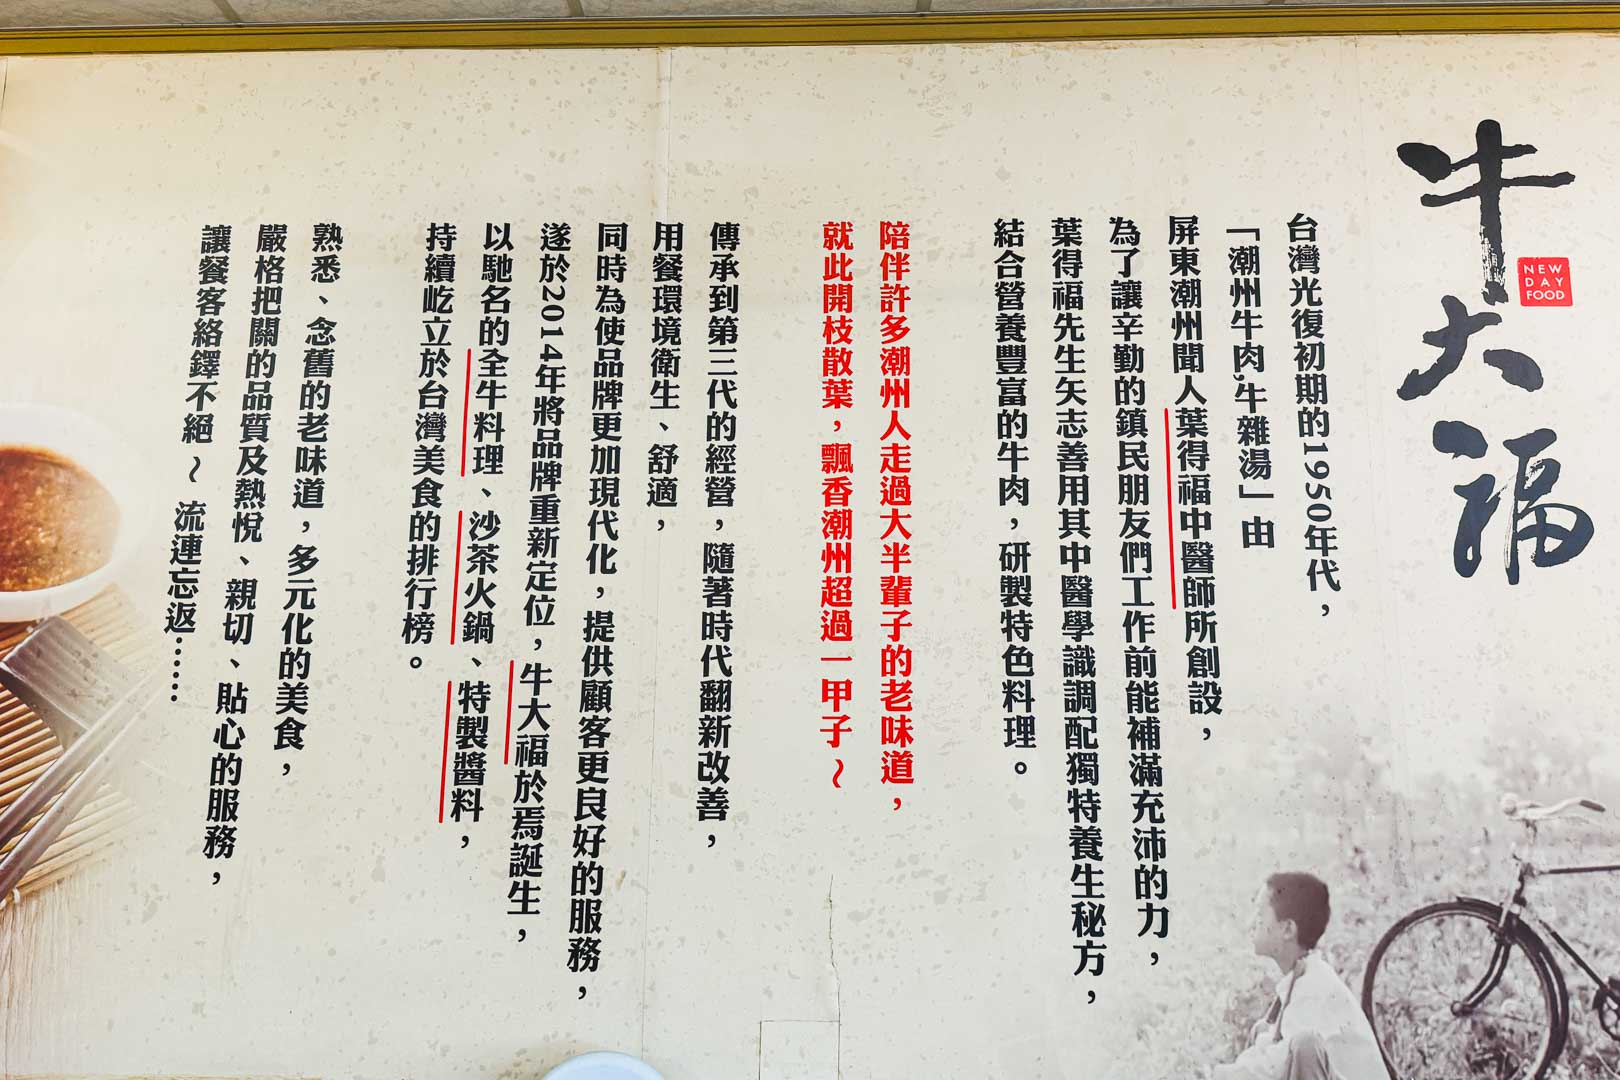 牛大福
NEW
DAY
FOOD
台灣光復初期的1950年代，
「潮州牛肉、牛雜湯」由
屏東潮州聞人葉得福中醫師所創設，
為了讓辛勤的鎮民朋友們工作前能補滿充沛的力，
葉得福先生矢志善用其中醫學識調配獨特養生秘方，
結合營養豐富的牛肉，研製特色料理。
陪伴許多潮州人走過大半輩子的老味道，
就此開枝散葉，飄香潮州超過一甲子～
傳承到第三代的經營，隨著時代翻新改善，
用餐環境衛生、舒適，
同時為使品牌更加現代化，提供顧客更良好的服務，
遂於2014年將品牌重新定位，牛大福於焉誕生，
以馳名的全牛料理、沙茶火鍋、特製醬料，
持續屹立於台灣美食的排行榜。
熟悉、念舊的老味道，多元化的美食，
嚴格把關的品質及熱悅、親切、貼心的服務，
讓餐客絡鐸不絕～流連忘返……